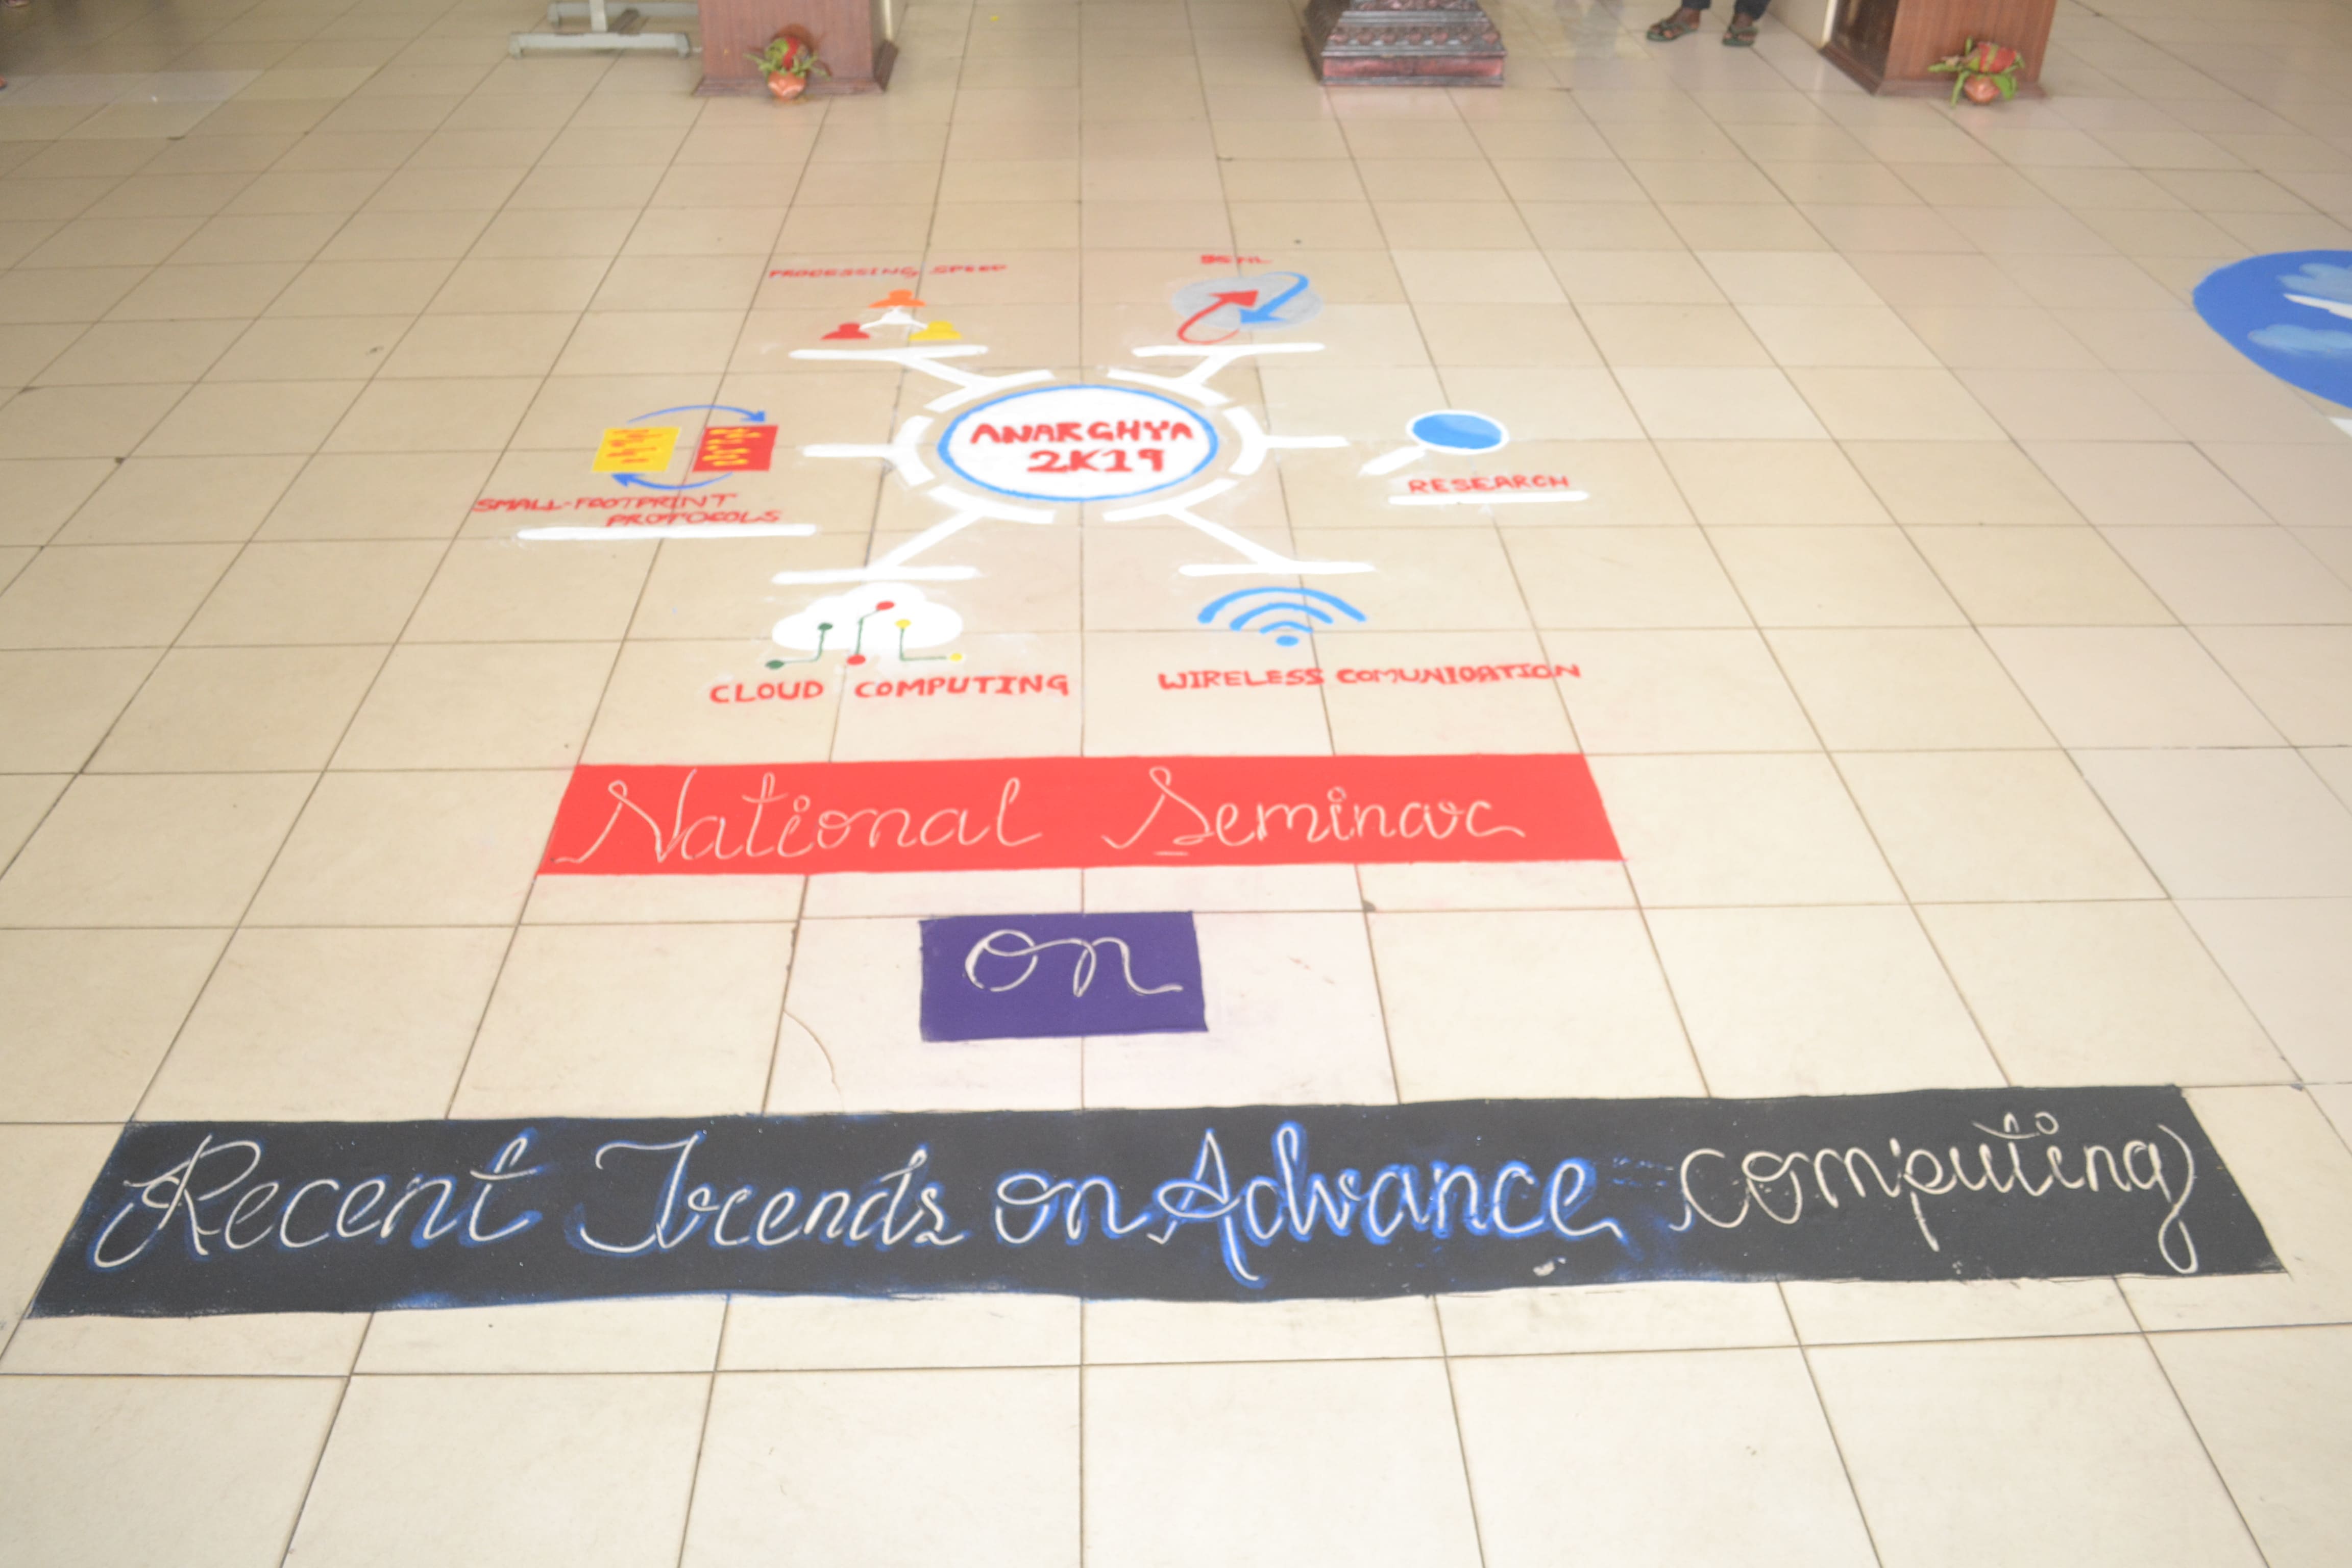 PROCESSING SPEED
BSNL
ANARGHYA
2K19
SMALL-FOOTPRINT
PROTOCOLS
RESEARCH
CLOUD COMPUTING
WIRELESS COMUNICATION
National Seminar
on
Recent Trends on Advance computing